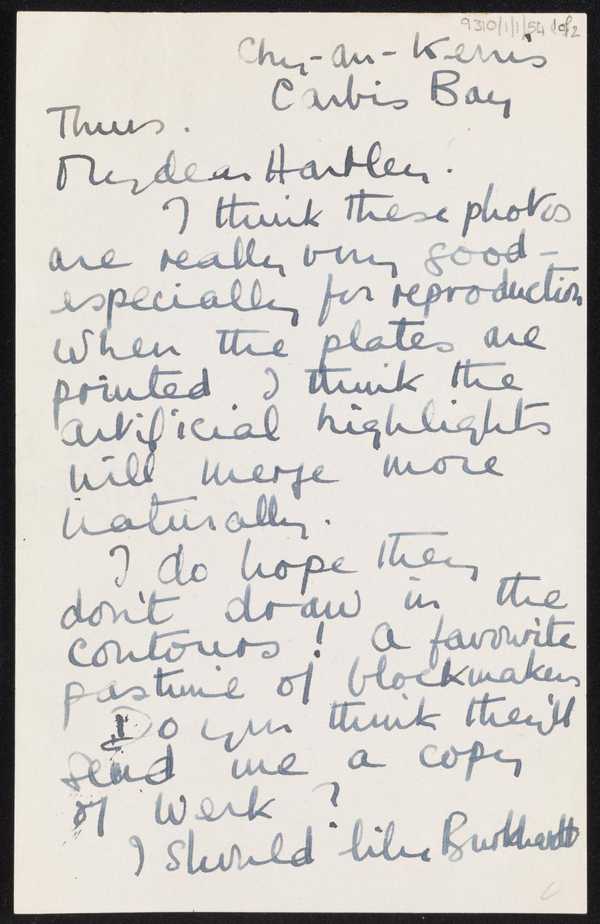 9310/1/1/54 1 of 2
Chy-an-Kerris
Carbis Bay
Thurs.
My dear Hartley.
I think these photos
are really very good –
especially for reproduction
when the plates are
printed I think the
artificial highlights
will merge more
naturally.
I do hope they
don't draw in the
contours! a favourite
pastime of blockmakers
Do you think they'll
send me a copy
of Werk?
I should like Burkhardt